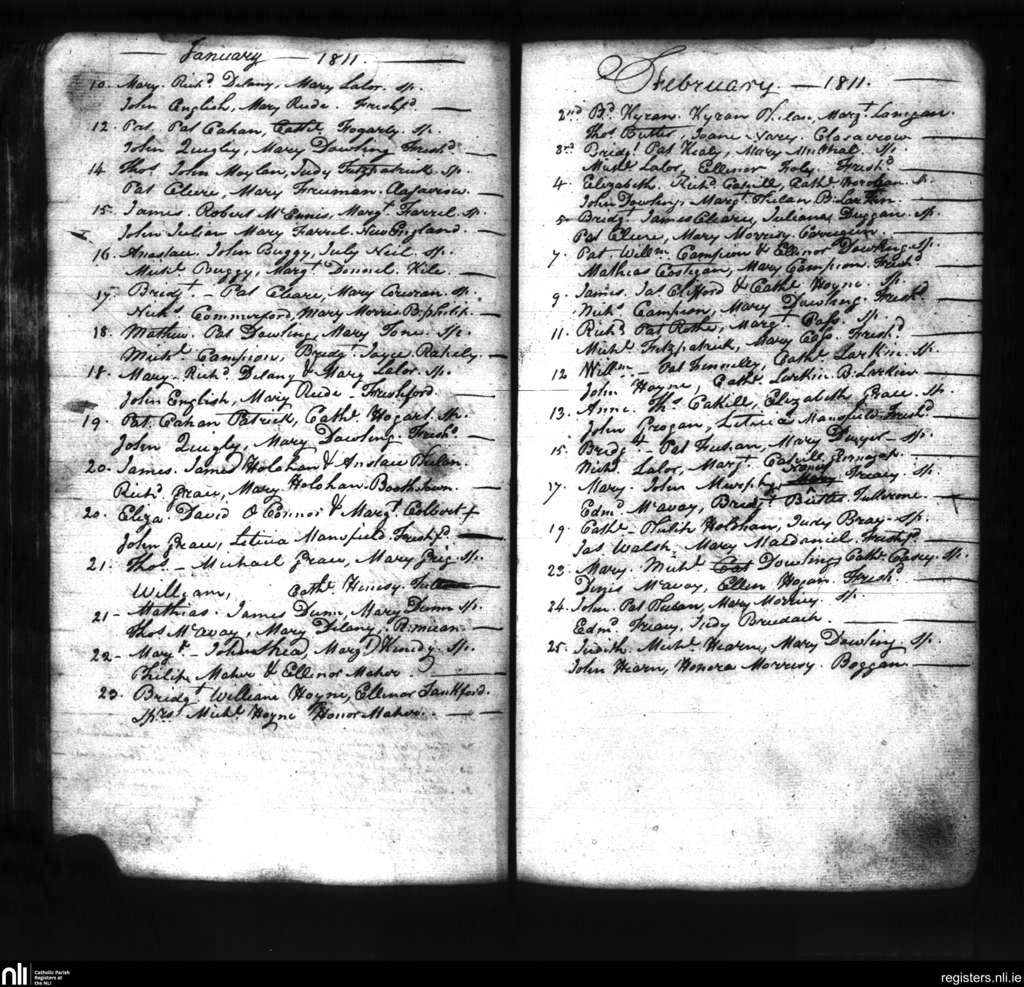 January 1811.
10. Mary. Richd Delany, Mary Lalor. sp.
John English, Mary Rude. Freshfd.
12. Pat. Pat Cahan, Cathe Fogarty. sp.
John Quigly, Mary Dowling Freshd.
14 Thos. John Moylan, Judy Fitzpatrick. sp.
Pat Cleere, Mary Freeman.
15. James. Robert McEnnis, Margt. Farrel. sp.
John Julian Mary Farrel. New England.
16. John Buggy, July Neil. sp.
Michl. Buggy, Margt Donnel. Kile.
17. Bridgt. Pat Cleare, Mary Corcoran. sp.
Nichs Commerford, Mary Morris B:philip.
18. Mathew. Pat Dowling, Mary Tone. sp.
Michl. Campion, Bridgt. Joyce. Rathely.
18. Mary. Richd. Delany & Mary Lalor. sp.
John English, Mary Rude. Freshford.
19. Pat. Cahan Patrick, Cathe Hogart. sp.
John Quigly, Mary Dowling. Freshd.
20. James. James Holohan & Anstace Phelan.
Richd. Grace, Mary Holohan. Boothstown.
20. Eliza. David O Connor & Margt.
John Grace, Leticia Mansfield. Freshfd.
21. Thos. Michael Grace, Mary Grig. sp.
Willm, Cathe. Henesy.
21 Mathias. James Dunn, Mary Dunn sp.
Thos McAvay, Mary Delany.
22 Margt. John Shea, Margt Kinidy. sp.
Philip Maher & Ellinor Maher.
23 Bridgt. William Hoyne, Ellinor Tankford.
sprs. Michl. Hoyne Honor Maher.
February 1811.
2nd Bd. Kyran. Kyran Philan, Margt Langan.
Thos Butler, Joane Nary. Closacrow
3rd Bridgt. Pat Healy, Mary sp.
Michl. Lalor, Ellinor Foly Freshd
4. Elizabeth. Richd Cahill, Cathe sp.
John Dowling, Margt. Phelan B:Larkin.
5. Bridgt. James Cleare, Juliana Duggan. sp.
Pat Cleere, Mary Morrisy.
7. Pat. Willm. Campion & Ellinor Dowling sp.
Mathias Costigan, Mary Campion. Freshd
9. James. Jas Clifford & Cathe Hoyne. sp.
Nichs Campion, Mary Dowling. Freshd.
11. Richd Pat Rothe, Margt. Cass. sp.
Michl. Fitzpatrick, Mary Cass. Freshd.
12 Willm. Pat Fennelly, Cathe. Larkin. sp.
John Hoyne, Cathe. Larkin. B:Larkin
13. Anne. Ths Cahill, Elizabeth Grace. sp.
John Grogan, Leticia Mansfield. Freshd
15. Bridgt. Pat Mary Dwyer. sp.
Nichs Lalor, Margt. Cahill.
17. Mary. John Murphy, Nancy Treacy. sp.
Edmd. McAvay, Bridgt Butler. Tullerone.
19. Cathe. Philip Holohan, Judy Bray. sp.
Jas Walsh, Mary MacDaniel. Freshfd.
23. Mary. Michl. Dowling Cathe. Casey. sp.
Dinis McAvay, Ellen Hogan. Freshd
24. John. Pat Phelan, Mary Morrisy. sp.
Edmd. Treacy, Judy Brudach.
25. Judith. Michl. Hearn, Mary Dowling. sp.
John Hearn, Honora Morrisy. Boggan
nli
Catholic Parish
Registers at
the NLI
registers.nli.ie